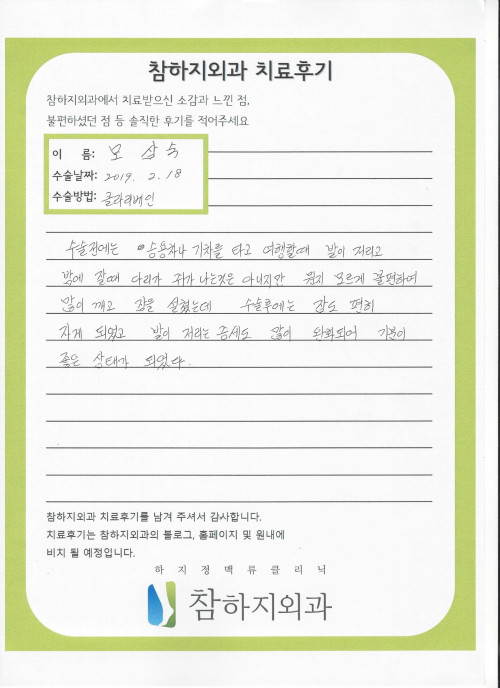 참하지외과 치료후기
참하지외과에서 치료받으신 소감과 느낀 점,
불편하셨던 점 등 솔직한 후기를 적어주세요
이 름: 모 삼 숙
수술날짜: 2019. 2. 18
수술방법: 클라리베인
수술전에는 승용차나 기차를 타고 여행할때 발이 저리고
밤에 잘때 다리가 쥐가 나는것은 아니지만 뭔지 모르게 불편하여
많이 깨고 잠을 설쳤는데 수술후에는 잠도 편히
자게 되었고 발이 저리는 증세도 많이 완화되어 기분이
좋은 상태가 되었다.
참하지외과 치료후기를 남겨 주셔서 감사합니다.
치료후기는 참하지외과의 블로그, 홈페이지 및 원내에
비치 될 예정입니다.
하지정맥류클리닉
참하지외과